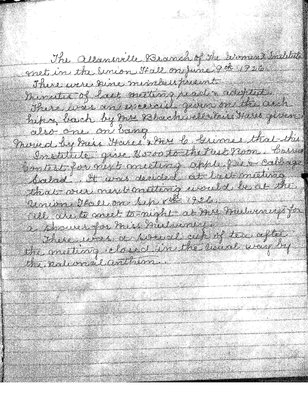 The Allansville Branch of The Women's Institute
met in the Union Hall on June 9th 1926.
There were nine members present
Minutes of last meeting read & adopted
There was an exercise given on the arch
hip & back by Mrs Miss Hares given
also one on
Moved by Miss Hares & Mrs C Grimes that the
Institute give to the Rest Room. Carried
Contest for next meeting apple pie & Cabbage
Salad. It was decided at last meeting
that our next meeting would be at the
Union Hall on Sep 8th 1926.
All are to meet to-night at Mrs Mulveney's for
a shower for Miss Mulveney.
There was a social cup of tea after
the meeting closed in the usual way by
the national anthem.